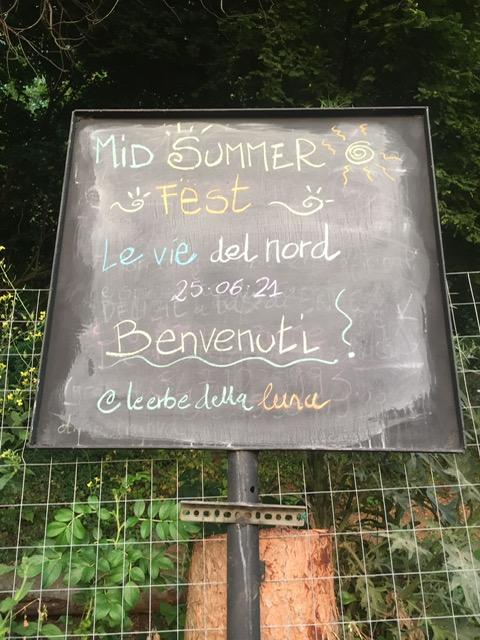 MiD SUMMER
Fëst
Le vie del nord
25.06.21
Benvenuti
@leerbedellaluna